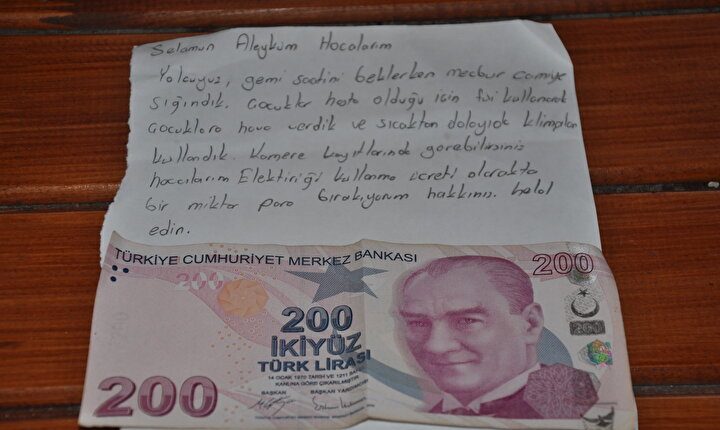 Selamun Aleyküm Hocalarım
Yolcuyuz, gemi saatini beklerken mecbur camiye
sığındık. Çocuklar hasta olduğu için fişi kullanarak
çocuklara hava verdik ve sıcaktan dolayıda klimaları
kullandık. Kamere kayıtlarında görebilirsiniz
hocalarım Elektiriği kullanma ücreti olarakta
bir miktar para bırakıyorum hakkınızı helal
edin.
TÜRKİYE CUMHURİYET MERKEZ BANKASI
200
200
200
İKİYÜZ
TÜRK LİRASI
14 OCAK 1970 TARİH VE 1211 SAYILI
KANUNA GÖRE ÇIKARILMIŞTIR
BAŞKAN
BAŞKAN YARDIMCISI
200
200